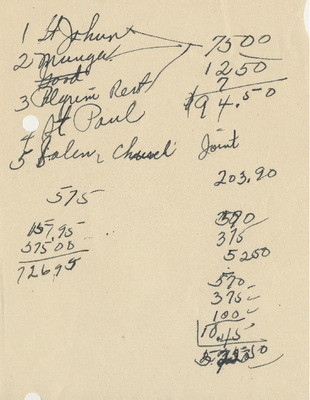 1 St John
2 Munger
Good
3 Pilgrim Rest
4 St Paul
5 Salem, Church
7500
1250
7
$94.50
Joint
203.90
575
157.95
575 00
726 95
375
52 50
570
375
100